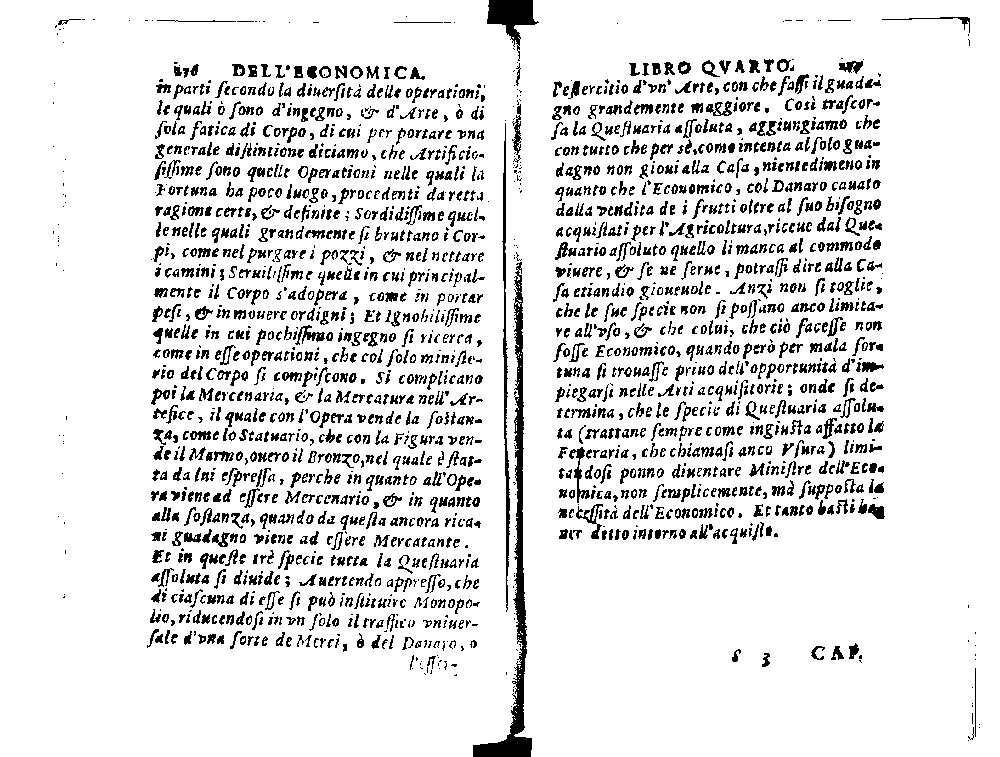 276 DELL'ECONOMICA.
in parti secondo la diuersità delle operationi,
le quali ò sono d'ingegno, & d'Arte, ò di
sola fatica di Corpo, di cui per portare vna
generale distintione diciamo, che Artificio-
sissime sono quelle Operationi nelle quali la
Fortuna ha poco luogo, procedenti da retta
ragione certe, & definite; Sordidissime quel-
le nelle quali grandemente si bruttano i Cor-
pi, come nel purgare i pozzi, & nel nettare
i camini; Seruilissime quelle in cui principal-
mente il Corpo s'adopera, come in portar
pesi, & in mouere ordigni; Et Ignobilissime
quelle in cui pochissimo ingegno si ricerca,
come in esse operationi, che col solo ministe-
rio del Corpo si compiscono. Si complicano
poi la Mercenaria, & la Mercatura nell'Ar-
tefice, il quale con l'Opera vende la sostan-
za, come lo Statuario, che con la Figura ven-
de il Marmo, ouero il Bronzo, nel quale è stat-
ta da lui espressa, perche in quanto all'Ope-
ra viene ad essere Mercenario, & in quanto
alla sostanza, quando da questa ancora rica-
ni guadagno viene ad essere Mercatante.
Et in queste trè specie tutta la Questuaria
assoluta si diuide; Auertendo appresso, che
di ciascuna di esse si può instituire Monopo-
lio, riducendosi in vn solo il traffico vniuer-
sale d'vna sorte de Merci, ò del Danaro, o
l'esser-
LIBRO QVARTO. 277
l'essercitio d'vn' Arte, con che fassi il guada-
gno grandemente maggiore. Così trascor-
sa la Questuaria assoluta, aggiungiamo che
con tutto che per sè, come intenta al solo gua-
dagno non gioui alla Casa, nientedimeno in
quanto che l'Economico, col Danaro cauato
dalla vendita de i frutti oltre al suo bisogno
acquistati per l'Agricoltura, riceue dal Que-
stuario assoluto quello li manca al commodo
viuere, & se ne serue, potrassi dire alla Ca-
sa etiandio gioueuole. Anzi non si toglie,
che le sue specie non si possano anco limita-
re all'vso, & che colui, che ciò facesse non
fosse Economico, quando però per mala for-
tuna si trouasse priuo dell'opportunità d'im-
piegarsi nelle Arti acquisitorie; onde si de-
termina, che le specie di Questuaria assolu-
ta (trattane sempre come ingiusta affatto la
Feneraria, che chiamasi anco Vsura) limi-
tandosi ponno diuentare Ministre dell'Eco-
nomica, non semplicemente, mà supposta la
necessità dell'Economico. Et tanto basti ha-
uer detto intorno all'acquisto.
S 3 CAP.